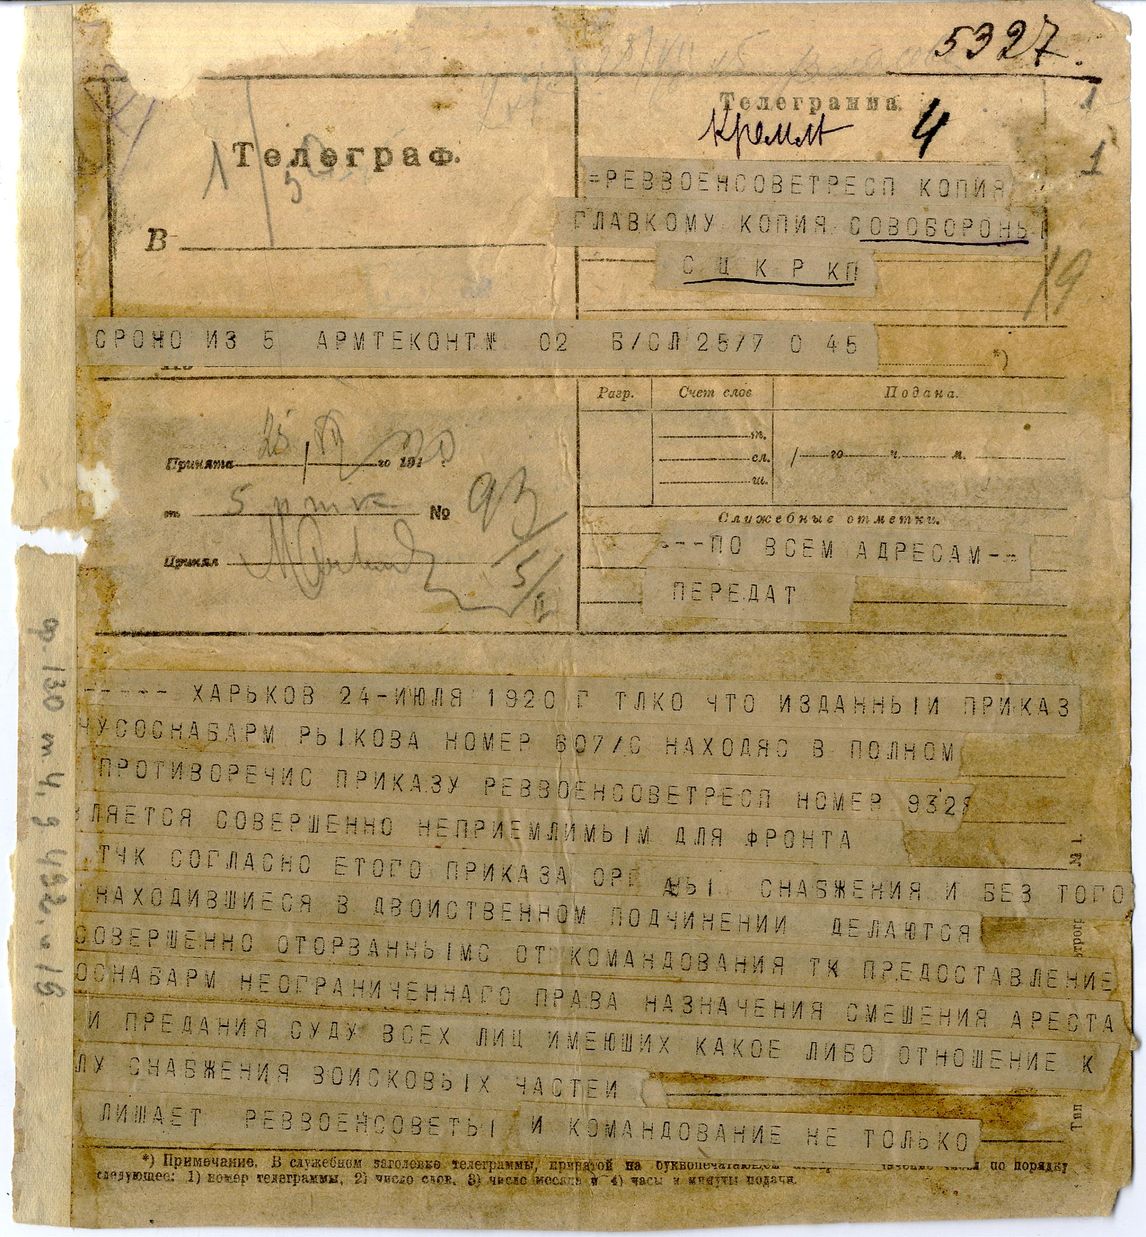 5327.
Телеграф.
Телеграмма.
Кремль 4
1
1
=РЕВВОЕНСОВЕТРЕСП КОПИЯ
ГЛАВКОМУ КОПИЯ СОВОБОРОНЫ
С Ц К Р КП
В
19
СРОНО ИЗ 5 АРМТЕКОНТ№ 02 Б/СЛ 25/7 0 45
*)
Разр. Счет слов Подана.
т.
сл. /—го ч. м.
ш.
Принята 25/VII го 191 20
от 5 № 93
Принял
5/
Служебные отметки.
---ПО ВСЕМ АДРЕСАМ--
ПЕРЕДАТ
----- ХАРЬКОВ 24-ИЮЛЯ 1920 Г ТЛКО ЧТО ИЗДАННЫИ ПРИКАЗ
ЧУСОСНАБАРМ РЫКОВА НОМЕР 607/С НАХОДЯС В ПОЛНОМ
ПРОТИВОРЕЧИС ПРИКАЗУ РЕВВОЕНСОВЕТРЕСП НОМЕР 9328
ВЛЯЕТСЯ СОВЕРШЕННО НЕПРИЕМЛИМЫМ ДЛЯ ФРОНТА
ТЧК СОГЛАСНО ЕТОГО ПРИКАЗА ОРГ АНЫ СНАБЖЕНИЯ И БЕЗ ТОГО
НАХОДИВШИЕСЯ В ДВОИСТВЕННОМ ПОДЧИНЕНИИ ДЕЛАЮТСЯ
СОВЕРШЕННО ОТОРВАННЫМС ОТ КОМАНДОВАНИЯ ТК ПРЕДОСТАВЛЕНИЕ
ОСНАБАРМ НЕОГРАНИЧЕННАГО ПРАВА НАЗНАЧЕНИЯ СМЕШЕНИЯ АРЕСТА
И ПРЕДАНИЯ СУДУ ВСЕХ ЛИЦ ИМЕЮШИХ КАКОЕ ЛИБО ОТНОШЕНИЕ К
ЛУ СНАБЖЕНИЯ ВОИСКОВЫХ ЧАСТЕИ
ЛИШАЕТ РЕВВОЕНСОВЕТЫ И КОМАНДОВАНИЕ НЕ ТОЛЬКО
*) Примечание. В служебном заголовке телеграммы, принятой на буквопечатающем по порядку
следующее: 1) номер телеграммы, 2) число слов, 3) число месяца и 4) часы и минуты подачи.
№ 1.
Тип
ф. 130 т 4, д 482, л 18